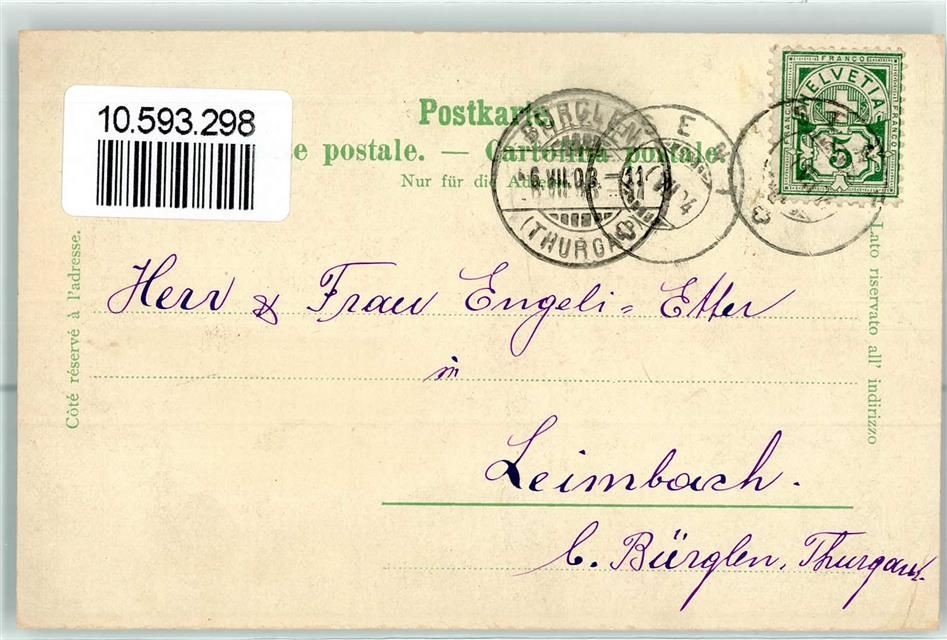 10.593.298
FRANCO
HELVETIA
5
Postkarte.
e postale. — Cartolina postale.
Nur für die Adresse
BÜRGLEN
6.VII.03 – 11
(THURGAU)
Côté réservé à l'adresse.
Lato riservato all' indirizzo
Herr & Frau Engeli=Etter
in
Leimbach.
b. Bürglen, Thurgau.